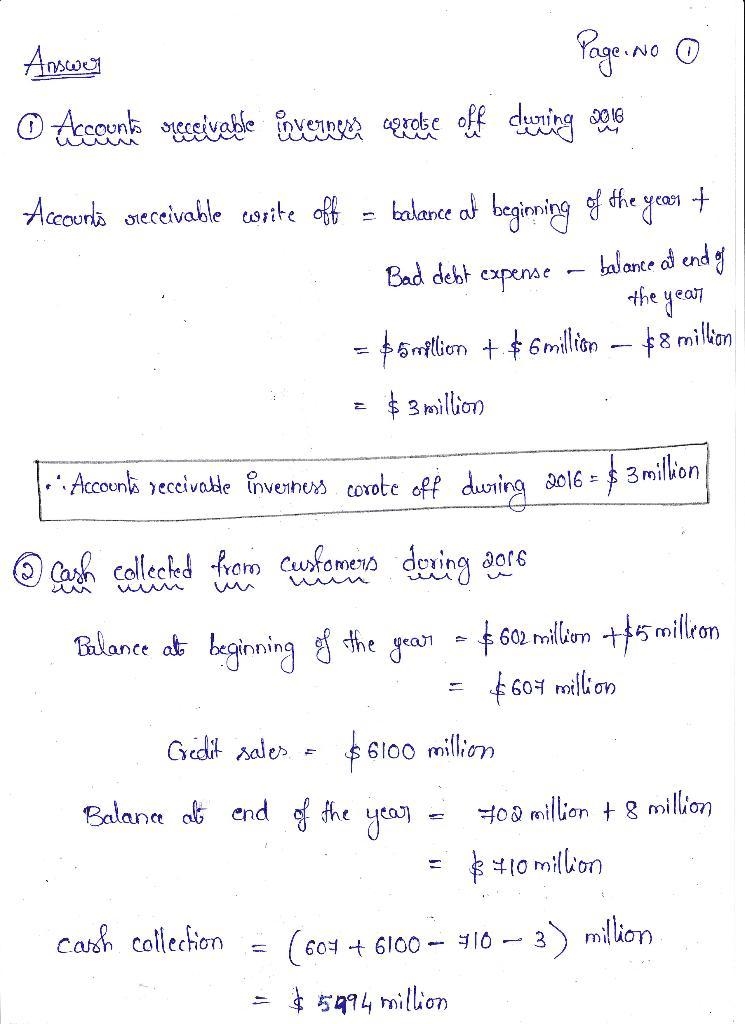 Answer
Page.No ①
① Accounts receivable inverness wrote off during 2016
Accounts receivable write off = balance at beginning of the year +
Bad debt expense - balance at end of
the year
= $5 million + $6 million - $8 million
= $3 million
∴ Accounts receivable inverness wrote off during 2016 = $3 million
② Cash collected from customers during 2016
Balance at beginning of the year = $602 million + $5 million
= $607 million
Credit sales = $6100 million
Balance at end of the year = 702 million + 8 million
= $710 million
cash collection = (607 + 6100 - 710 - 3) million
= $5994 million